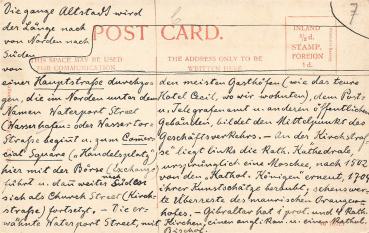 Die ganze Altstadt wird
der Länge nach
von Norden nach
Süden
von
einer Hauptstraße durchzo-
gen, die im Norden unter dem
Namen Waterport Street
(Wasserhafen- oder Wassertor-
Straße beginnt u. zum Comer-
cial Square ("Handelsplatz")
hier mit der Börse (Exchange)
führt u. dann weiter nach Süden
sich als Church Street (Kirch-
straße) fortsetzt. - Die er-
wähnte Waterport Street, mit
POST CARD.
THIS SPACE MAY BE USED
FOR COMMUNICATION
THE ADDRESS ONLY TO BE
WRITTEN HERE
INLAND
½d.
STAMP.
FOREIGN
1d.
7
den meisten Gasthöfen (wie das teure
Hotel Cecil, wo wir wohnten), dem Post-
u. Telegrafenamt u. anderen öffentlichen
Gebäuden, bildet den Mittelpunkt des
Geschäftsverkehrs. - An der Kirchstra-
ße liegt links die Kath. Kathedrale,
ursprünglich eine Moschee, nach 1502
von den "Kathol. Königen" erneut, 1704
ihrer Kunstschätze beraubt, sehenswer-
te Überreste des maurischen Orangen-
hofes. - Gibraltar hat 1 prot. und 4 Kath.
Kirchen, einen angl. und einen Kathol.
Bischof.